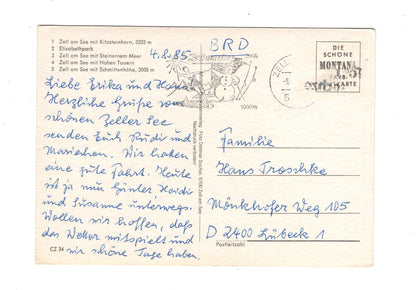 1 Zell am See mit Kitzsteinhorn, 3203 m
2 Elisabethpark
3 Zell am See mit Steinernem Meer
4 Zell am See mit Hohen Tauern
5 Zell am See mit Schmittenhöhe, 2000 m
4.8.85
BRD
DIE
SCHÖNE
MONTANA
KARTE
ZELL
5
Liebe Erika und
Herzliche Grüße vom
schönen Zeller See
senden Euch Rudi und
Mariechen. Wir haben
eine gute Fahrt. Heute
ist ja nur Günter Heidi
und Susanne unterwegs.
Wollen wir hoffen, daß
das Wetter mitspielt und
wir schöne Tage haben.
CZ 34
Nachdruck verboten
5700 Zell am See
Familie
Hans Troschke
Mönkhofer Weg 105
D 2400 Lübeck 1
Postleitzahl